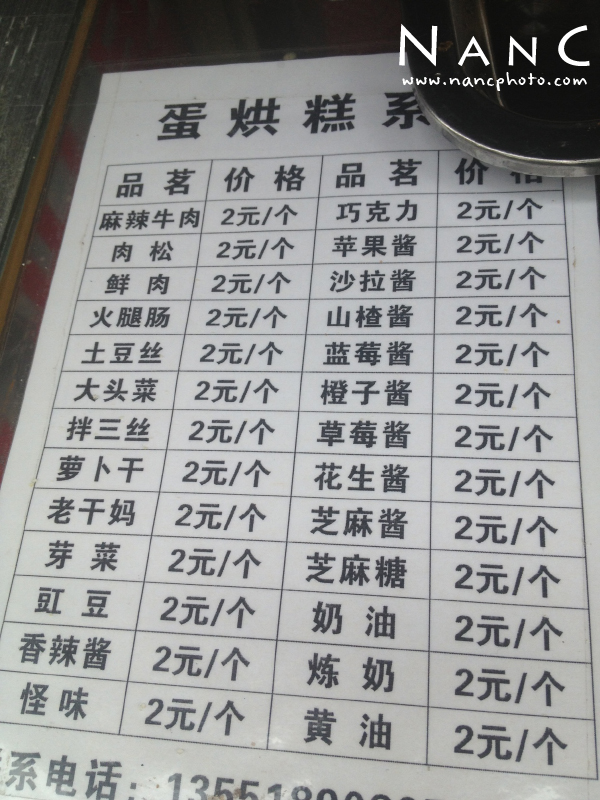 NANC
www.nancphoto.com
蛋烘糕系
品茗 价格 品茗 价格
麻辣牛肉 2元/个 巧克力 2元/个
肉松 2元/个 苹果酱 2元/个
鲜肉 2元/个 沙拉酱 2元/个
火腿肠 2元/个 山楂酱 2元/个
土豆丝 2元/个 蓝莓酱 2元/个
大头菜 2元/个 橙子酱 2元/个
拌三丝 2元/个 草莓酱 2元/个
萝卜干 2元/个 花生酱 2元/个
老干妈 2元/个 芝麻酱 2元/个
芽菜 2元/个 芝麻糖 2元/个
豇豆 2元/个 奶油 2元/个
香辣酱 2元/个 炼奶 2元/个
怪味 2元/个 黄油 2元/个
系电话: